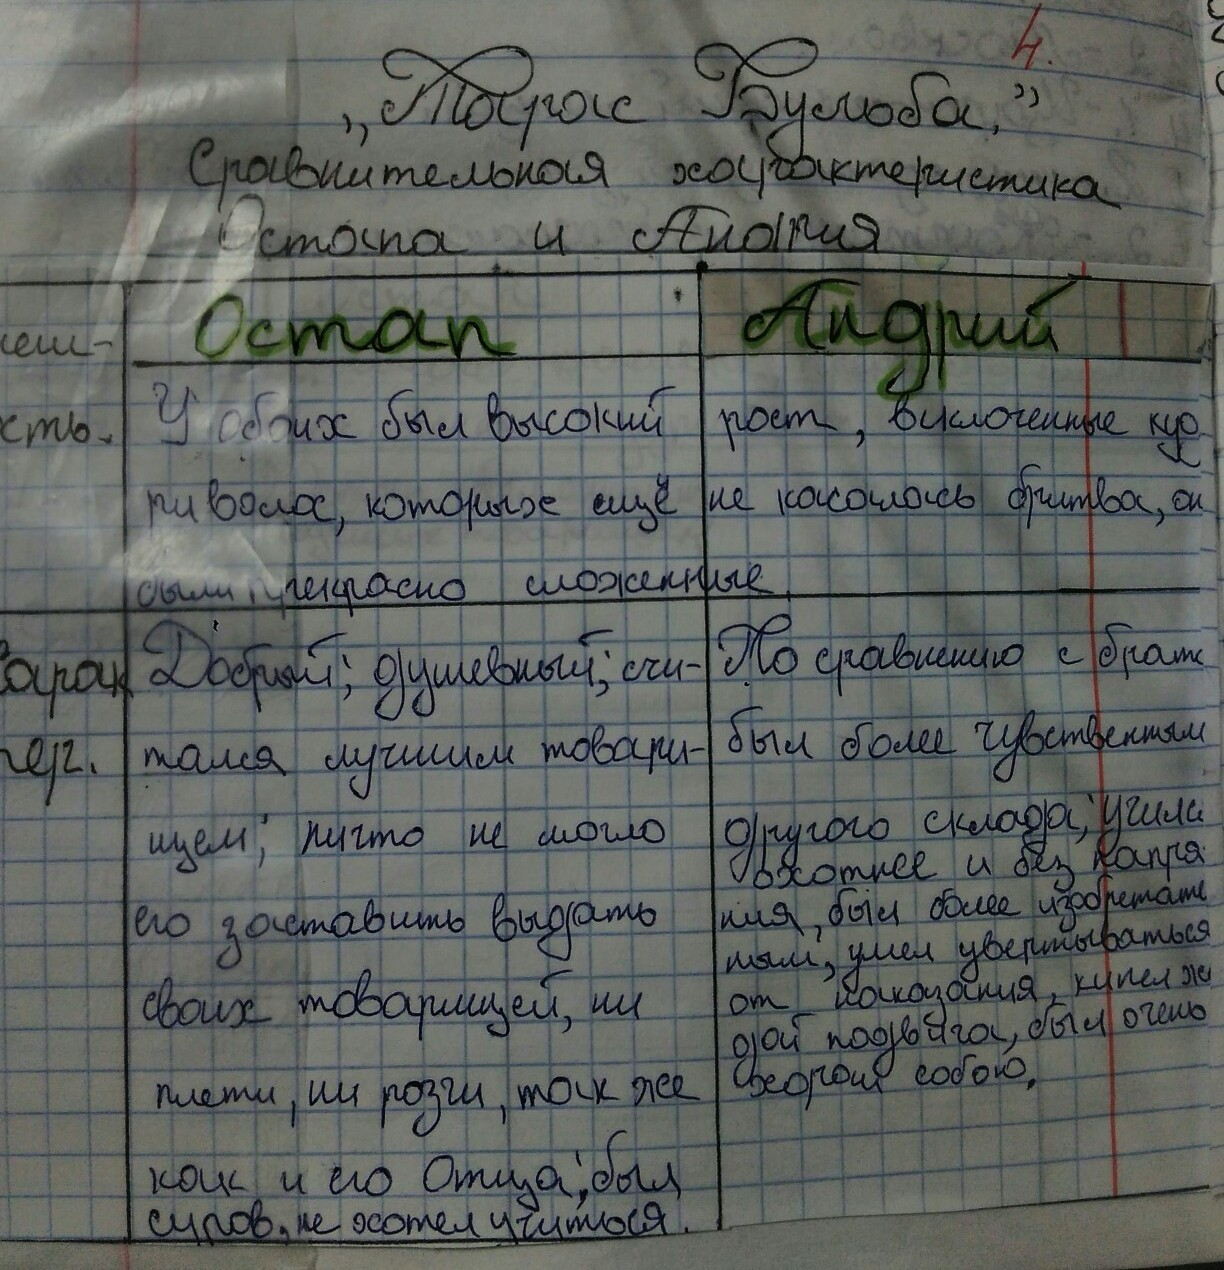 4.
„Тарас Бульба."
Сравнительная характеристика
Остапа и Андрия
Остап Андрий
неш-
У обоих был высокий рост, всклоченные куд
сть.
ри волос, которые ещё не касалась бритва, он
были прекрасно сложенные.
Харак
тер.
Добрый; душевный; счи-
тался лучшим товари-
щем; ничто не могло
его заставить выдать
своих товарищей, ни
плети, ни розги, так же
как и его отца; был
суров, не хотел учиться.
По сравнению с брат
был более чувственным
другого склада; училс
охотнее и без напря
ния, был более изобретате
ным; умел увертываться
от наказания, кипел жа
дой подвига, был очень
хорош собою.